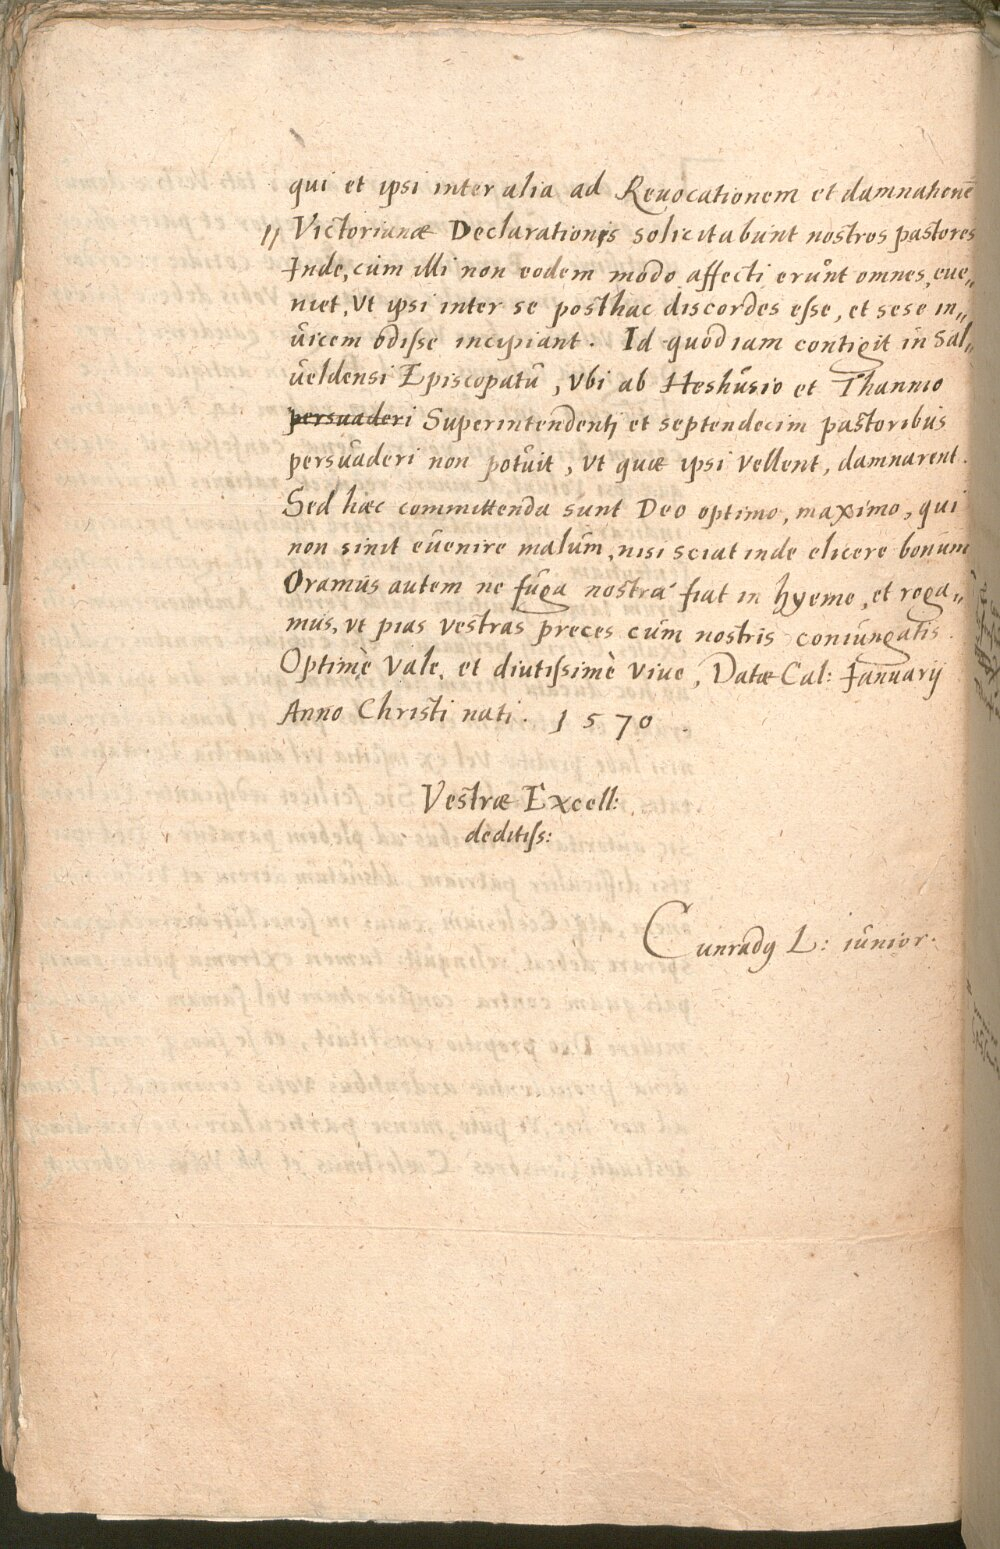 qui et ipsi inter alia ad Reuocationem et damnationē
Victorianæ Declarationis solicitabunt nostros pastores
Inde, cùm illi non eodem modo affecti erunt omnes, eue„
niet, Vt ipsi inter se posthac discordes esse, et sese in„
uicem odisse incipiant. Id quod iam contigit in Sal„
ueldensi Episcopatu, Vbi ab Heshusio et Thannio
persuaderi Superintendenti et septendecim pastoribus
persuaderi non potuit, Vt quæ ipsi Vellent, damnarent.
Sed hæc committenda sunt Deo optimo, maximo, qui
non sinit euenire malum, nisi sciat inde elicere bonum
Oramus autem ne fuga nostra fiat in hyeme, et roga„
mus, vt pias Vestras preces cum nostris coniungatis.
Optimè Vale, et diutissimè Viue, Datæ Cal: Januarij
Anno Christi nati. 1570.
Vestræ Excell:
deditiss:
Cunradg L: iunior.